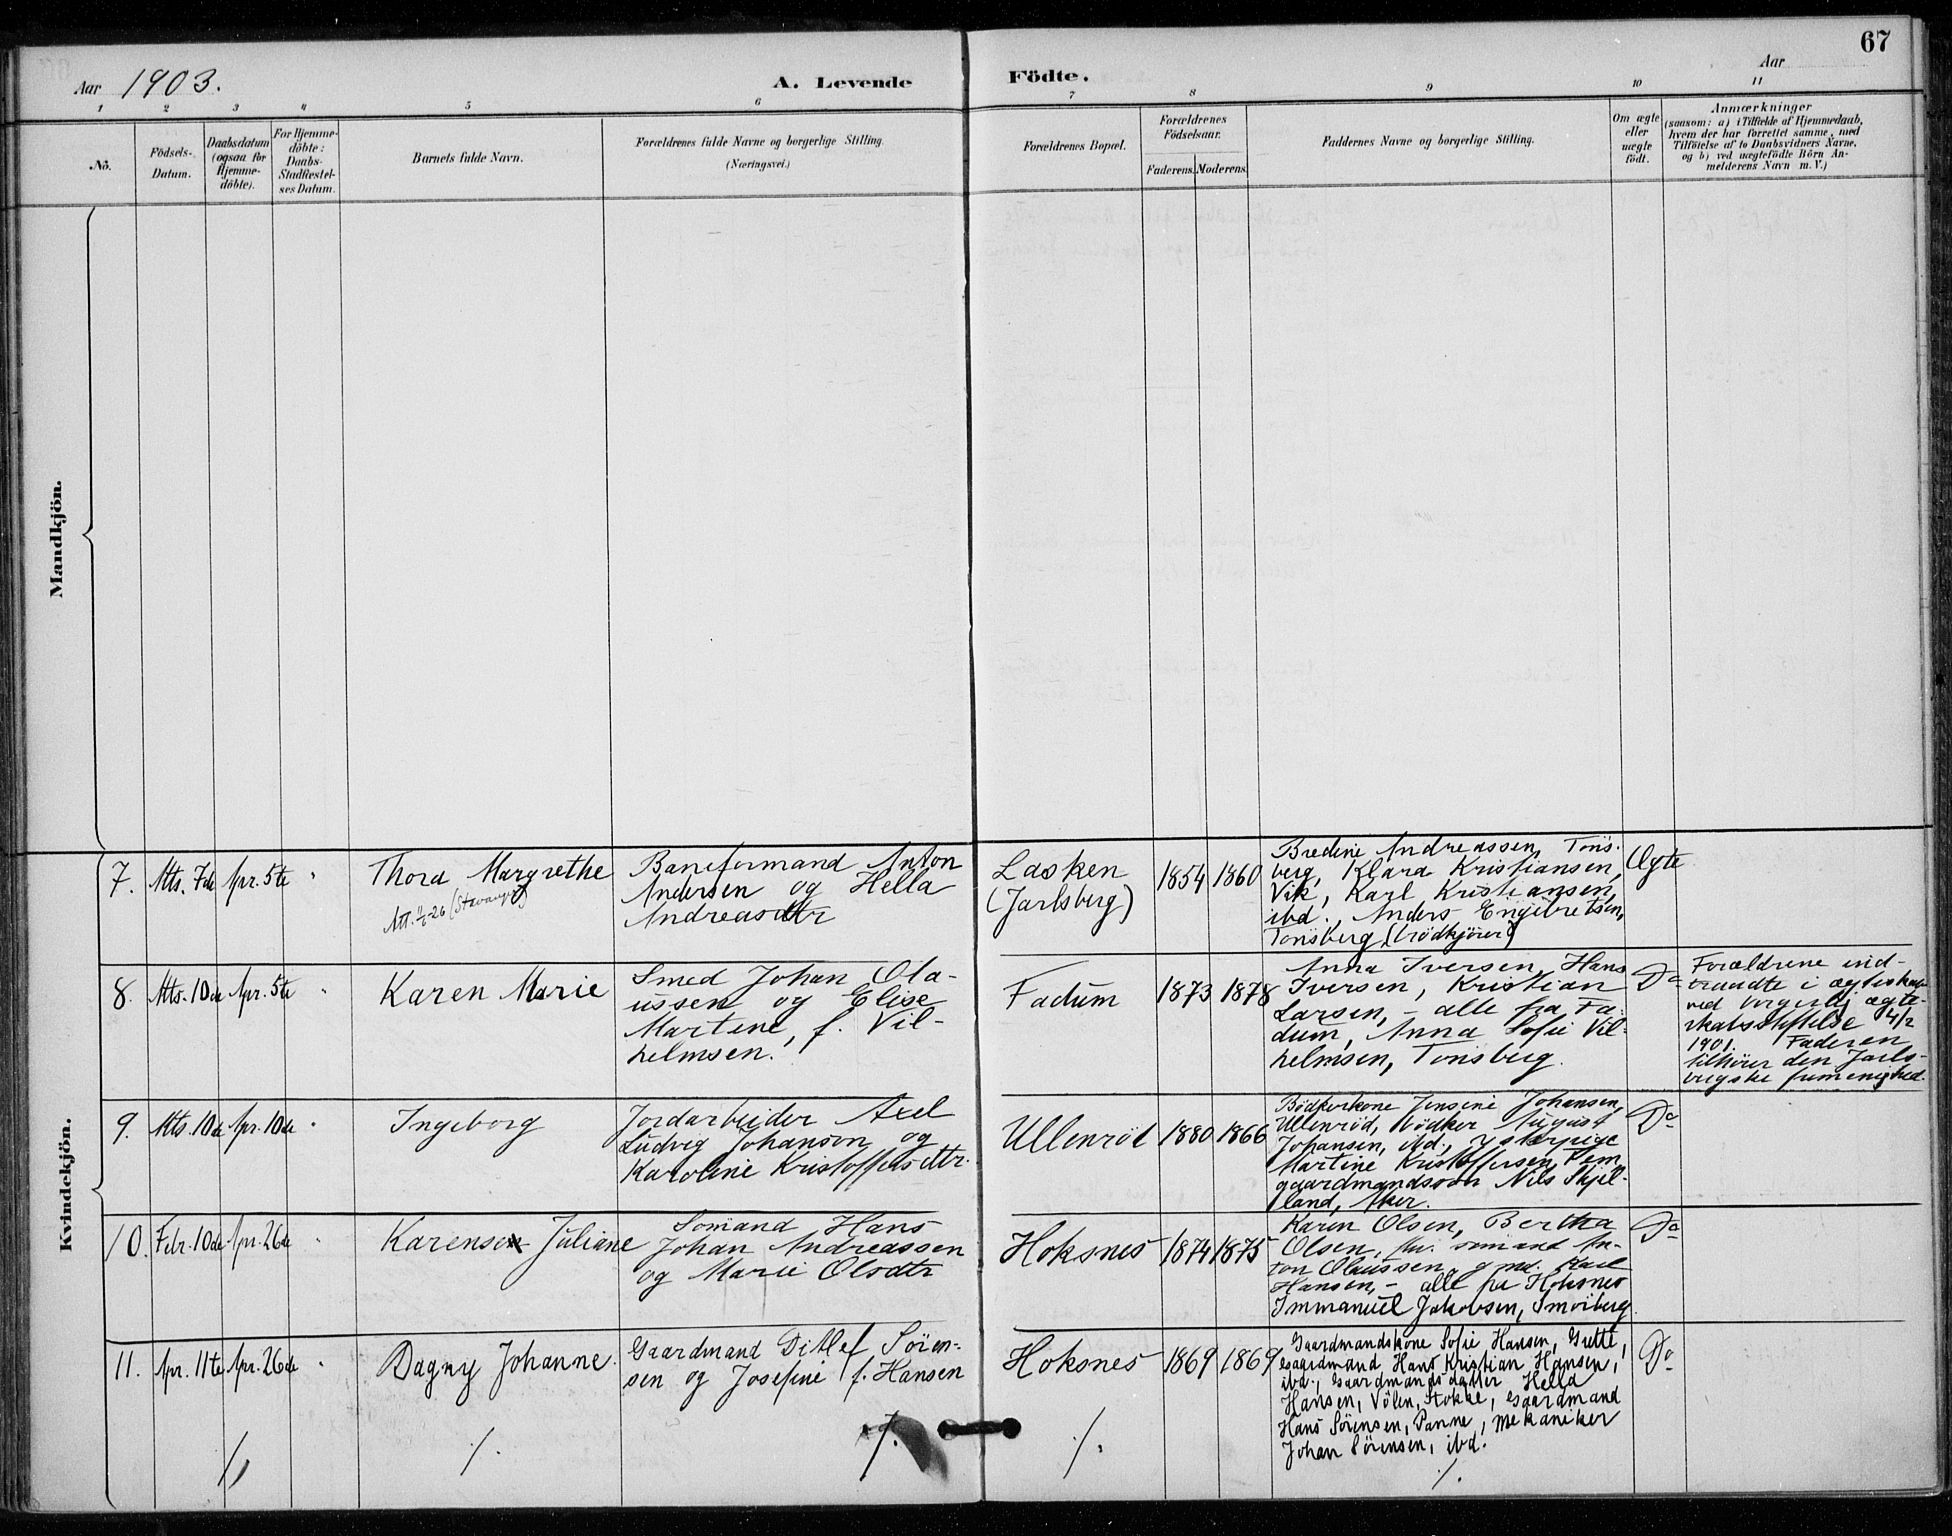 67
Aar 1903.
A. Levende Födte.
Aar
1 2 3 4 5 6 7 8 9 10 11
No.
Födsels-
Datum.
Daabsdatum
(ogsaa for
Hjemme-
döbte).
For Hjemme-
döbte:
Daabs-
Stadfæstel-
ses Datum.
Barnets fulde Navn.
Forældrenes fulde Navne og borgerlige Stilling.
(Næringsvei.)
Forældrenes Bopæl.
Forældrenes
Födselsaar.
Faderens. Moderens.
Faddernes Navne og borgerlige Stilling.
Om ægte
eller
uægte
födt.
Anmærkninger
(saasom: a) i Tilfælde af Hjemmedaab,
hvem der har forrettet samme, med
Tilföielse af to Daabsvidners Navne.
og b) ved uægtefödte Börn An-
melderens Navn m. V.)
Mandkjön.
Kvindekjön.
7. Mts. 7de Apr. 5te "
Thora Margrethe
Att. (Stavanger)
Baneformand Anton
Andersen og Hella
Andreasdtr
Lasken
(Jarlsberg)
1854 1860
Bredine Andreassen, Töns-
berg, Klara Kristiansen,
Vik, Karl Kristiansen,
ibd., Anders Engebretsen,
Tönsberg (brödkjörer)
Ægte
8. Mts. 10de Apr. 5te "
Karen Marie
Smed Johan Ola-
ussen og Elise
Martine, f. Vil-
helmsen.
Fadum
1873 1878
Anna Iversen, Hans
Iversen, Kristian
Larsen, - alle fra Fa-
dum, Anna Sofie Vil-
helmsen, Tönsberg.
Do
Forældrene ind-
traadte i ægteskab
ved borgerlig ægte-
skabsstiftelse 4/2
1901. Faderen
tilhører den Jarls-
bergske frimenighed.
9. Mts. 10de Apr. 10de "
Ingeborg
Jordarbeider Axel
Ludvig Johanson og
Karoline Kristoffersdtr.
Ullenröd
1880 1866
Bödkerkone Jensine Johansen,
Ullenröd, bödker August
Johansen, ibd., ysterpige
Martine Kristoffersen, Fem,
gaardmandssön Nils Skjel-
land, Aker.
Do
10. Febr. 10de Apr. 26de "
Karensen Juliane
Sömand Hans
Johan Andreassen
og Marie Olsdtr
Hoksnes
1874 1875
Karen Olsen, Bertha
Olsen, sömand An-
ton Olaussen, gmd. Karl
Hansen, - alle fra Hoksnes
Immanuel Jakobsen, Smörberg.
Do
11. Apr. 11te Apr. 26de "
Dagny Johanne.
Gaardmand Ditlef Sören-
sen og Josefine f. Hansen
Hoksnes
1869 1869
Gaardmandskone Sofie Hansen, Grette,
gaardmand Hans Kristian Hansen,
ibd., gaardmandsdatter Hella
Hansen, Völen, Stokke, gaardmand
Hans Sörensen, Panne, mekaniker
Johan Sörensen, ibd.
Do